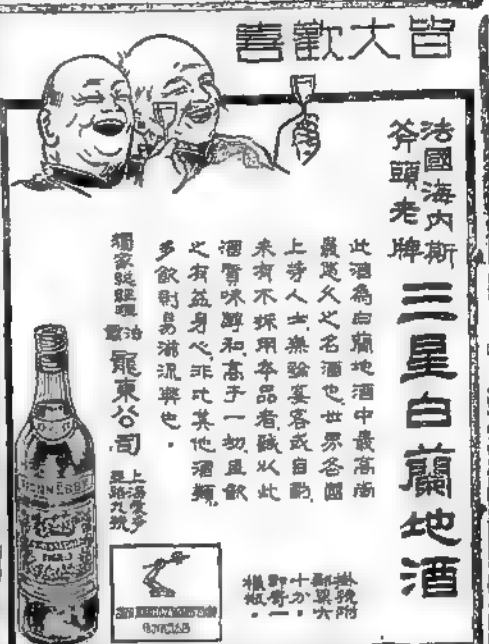 皆大歡喜
法國海內斯
斧頭老牌
三星白蘭地酒
此酒為白蘭地酒中最高尚
最悠久之名酒也世界各國
上等人士無論宴客或自酌
未有不採用本品者誠以此
酒質味醇和高于一切且飲
之有益身心非比其他酒類
多飲則易滋流弊也
獨家總經理
龍東公司
上海愛多
亞路九號
掛號附
郵票六
十分
即寄一
HENNESSY